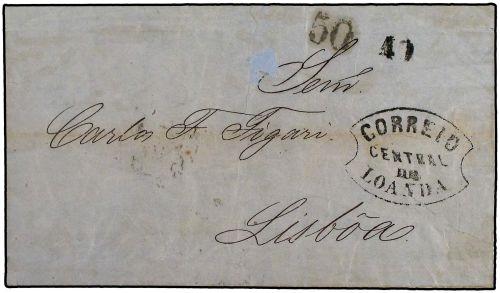 50
Senr.
Carlos F. Figari.
CORREIO
CENTRAL
DE
LOANDA
Lisbôa.